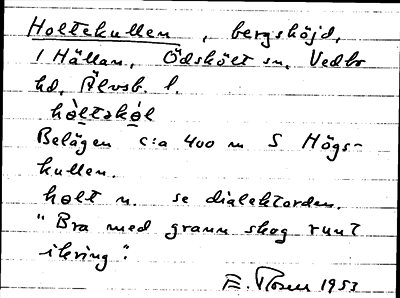 Holtekullen, bergshöjd,
i Hällan, Ödskölt sn, Vedbo
hd, Älvsb. l.
hòltəkòl
Belägen c:a 400 m S Högs-
kullen.
holt n. se dialektorden.
"Bra med grann skog runt
ikring".
E. Rosell 1953